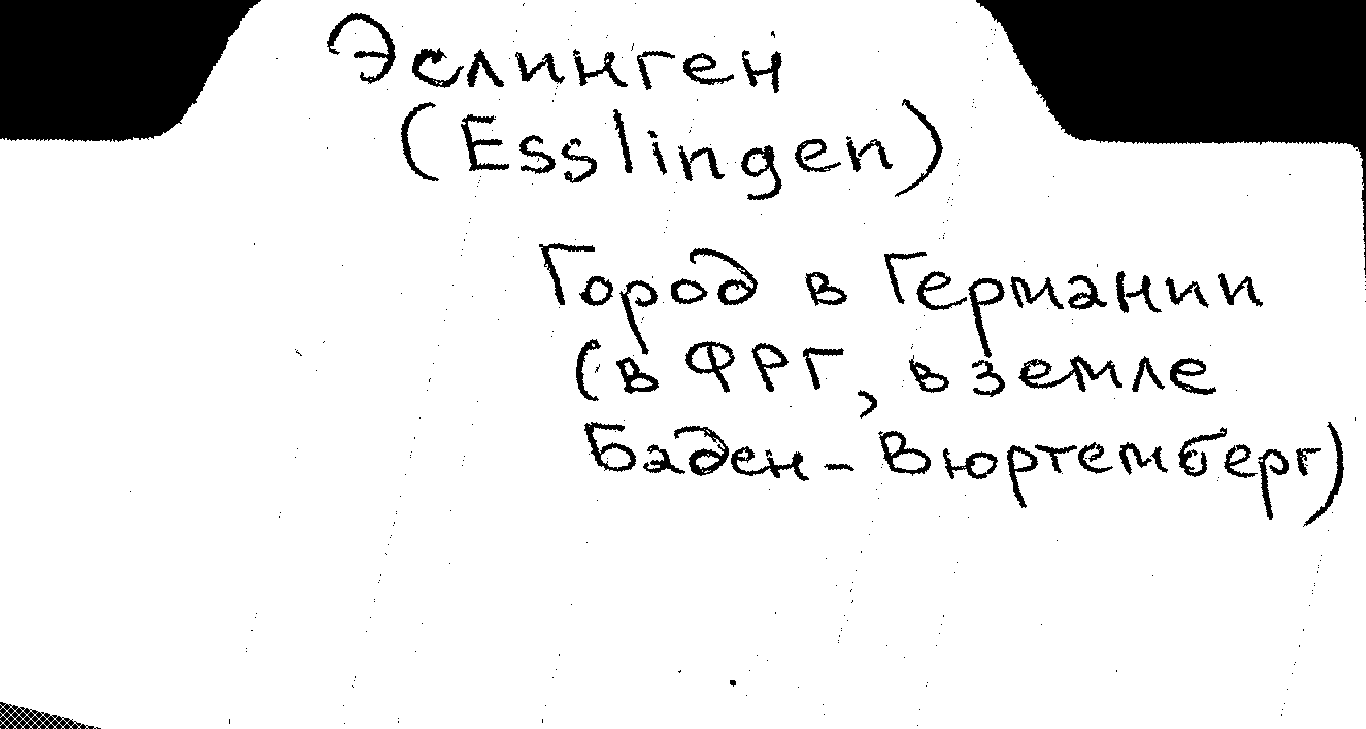 Эслинген
(Esslingen)
Город в Германии
(в ФРГ, в земле
Баден-Вюртемберг)